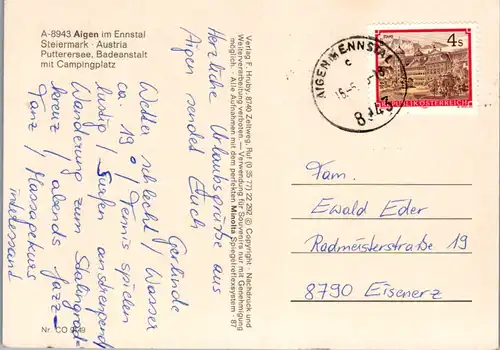 A-8943 Aigen im Ennstal
Steiermark · Austria
Putterersee, Badeanstalt
mit Campingplatz
Herzliche Urlaubsgrüße aus
Aigen sendet Euch
Gerlinde
Wetter schlecht / Wasser
ca. 19° / Tennis spielen
lustig / Surfen anstrengend
Wanderung zum Stalingrad-
kreuz / abends Jazz-
Tanz / Massagekurs
interessant
Nr. CO
Verlag F. Hruby, 8740 Zeltweg, Ruf (0 35 77) 22 282 © Copyright · Nachdruck und
Weiterverarbeitung verboten. — Verwendung für Souvenirs nur mit Genehmigung
möglich. · Alle Aufnahmen mit dem perfekten Minolta Spiegelreflexsystem · 87
AIGEN IM ENNSTAL
c
8943
4 S
REPUBLIK ÖSTERREICH
Fam.
Ewald Eder
Radmeisterstraße 19
8790 Eisenerz